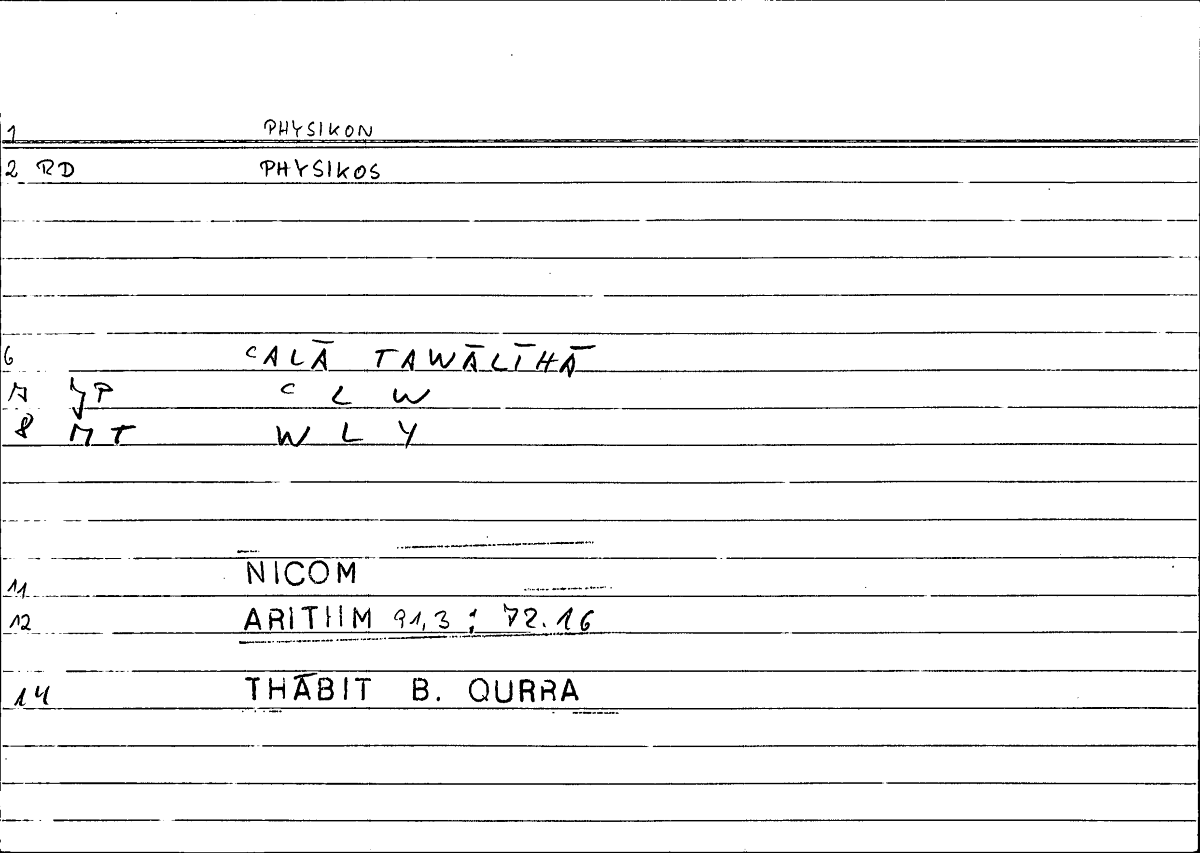 1 PHYSIKON
2 RD PHYSIKOS
6 ᶜALĀ TAWĀLĪHĀ
7 JP ᶜ L W
8 MT W L Y
11 NICOM
12 ARITHM 91,3 ; 72.16
14 THĀBIT B. QURRA